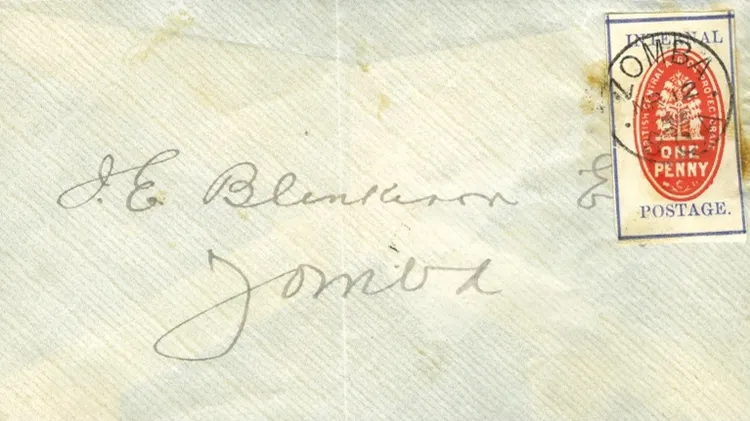 INTERNAL
BRITISH CENTRAL AFRICA PROTECTORATE
ONE
PENNY
POSTAGE.
ZOMBA
J. E. Blenkiron E
Zomba